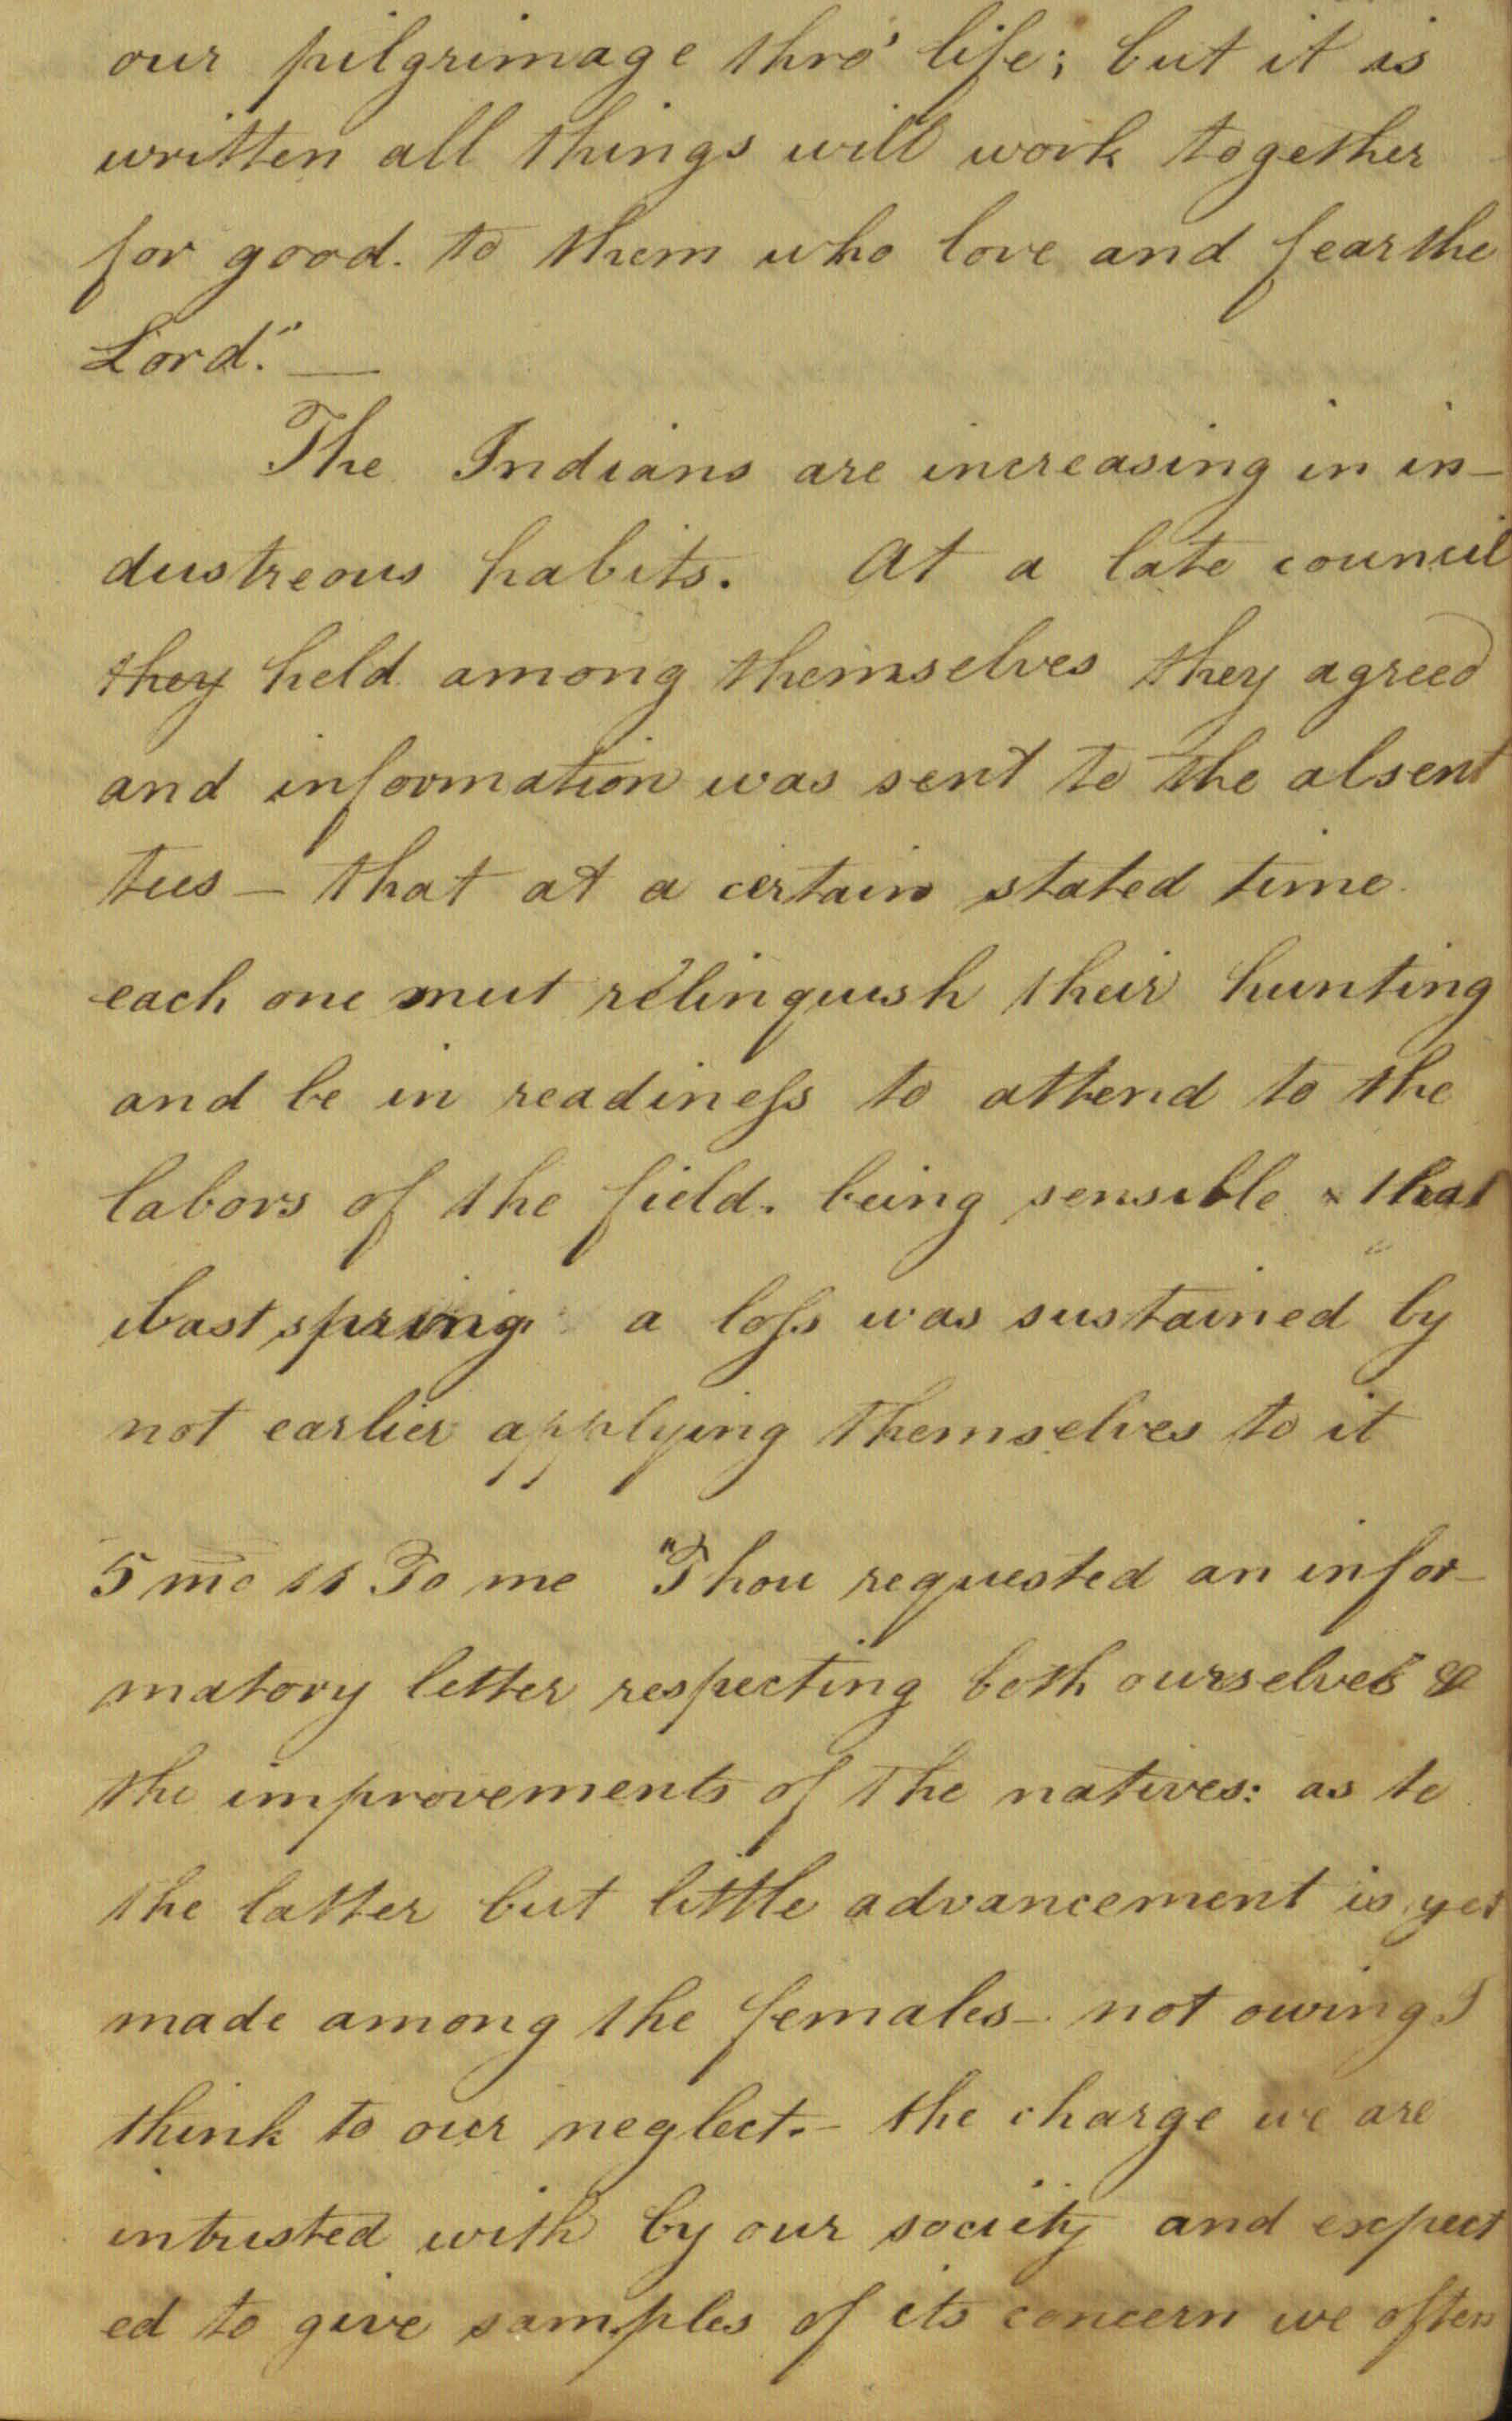 our pilgrimage thro' life; but it is
written all things will work together
for good. to them who love and fear the
Lord." —
The Indians are increasing in in-
dustreous habits. At a late council
they held among themselves they agreed
and information was sent to the absent
tees — that at a certain stated time.
each one must relinquish their hunting
and be in readiness to attend to the
labors of the field. being sensible that
last spring a loss was sustained by
not earlier applying themselves to it
5 mo 11 To me "Thou requested an infor-
matory letter respecting both ourselves &
the improvements of the natives: as to
the latter but little advancement is yet
made among the females - not owing I
think to our neglect. - the charge we are
intrusted with by our society and expect
ed to give samples of its concern we often